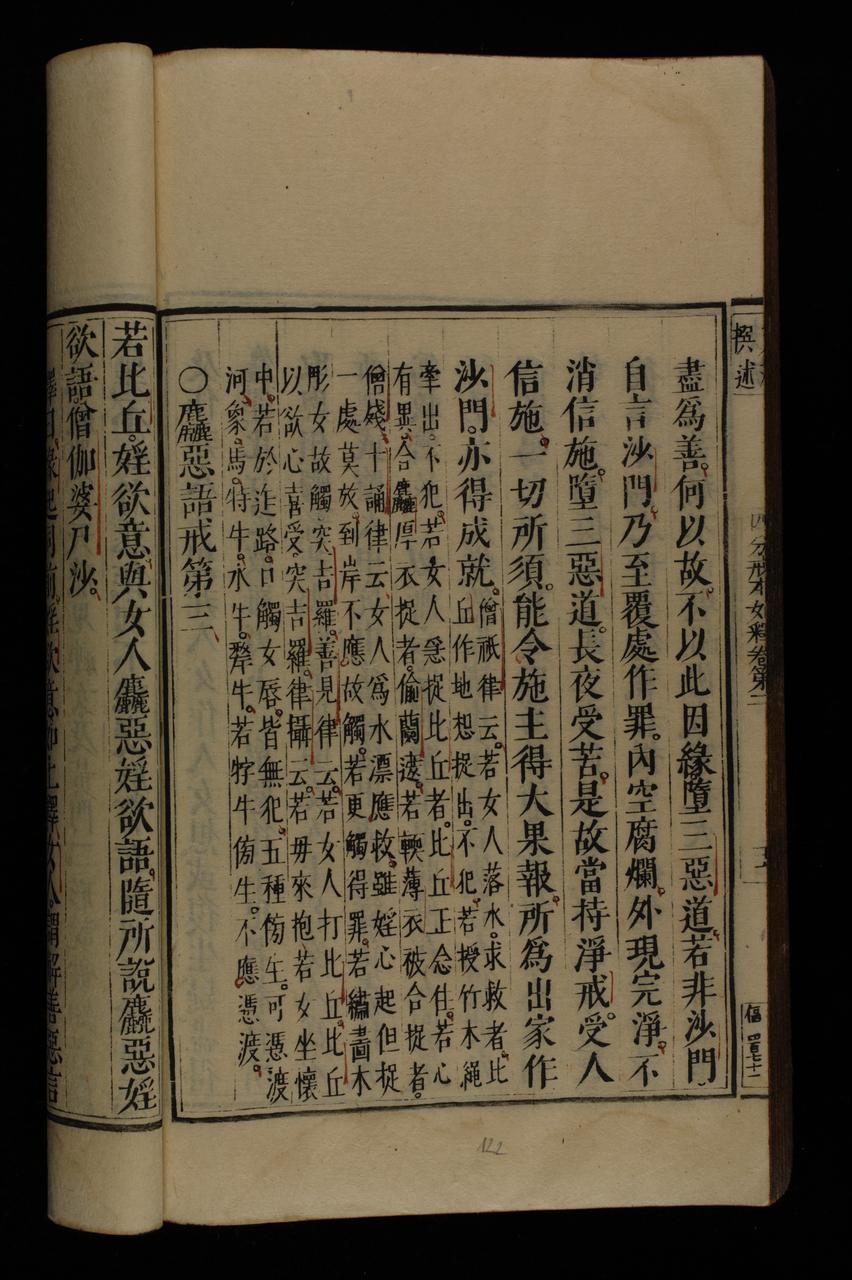 撰述
四分戒本如釋卷第二
信 四百七十二
盡爲善。何以故。不以此因緣墮三惡道。若非沙門
自言沙門。乃至覆處作罪。內空腐爛。外現完淨。不
消信施。墮三惡道。長夜受苦。是故當持淨戒。受人
信施。一切所須。能令施主得大果報。所爲出家作
沙門。亦得成就。
僧祇律云。若女人落水。求救者。比
丘作地想捉出。不犯。若授竹木繩
牽出。不犯。若女人急捉比丘者。比丘正念住。若心
有異。合麤厚衣捉者。偷蘭遮。若輭薄衣破合捉者。
僧殘。十誦律云。女人爲水漂應救。雖婬心起但捉
一處莫放。到岸不應故觸。若更觸得罪。若繡畫木
彫女故觸突吉羅。善見律云。若女人打比丘。比丘
以欲心喜受。突吉羅。律攝云。若母來抱若女坐懷
中。若於迮路。口觸女唇。皆無犯。五種傍生。可憑渡
河。象。馬。特牛。水牛。犛牛。若牸牛傍生。不應憑渡。
○麤惡語戒第三
若比丘。婬欲意。與女人麤惡婬欲語。隨所說麤惡婬
欲語。僧伽婆尸沙。